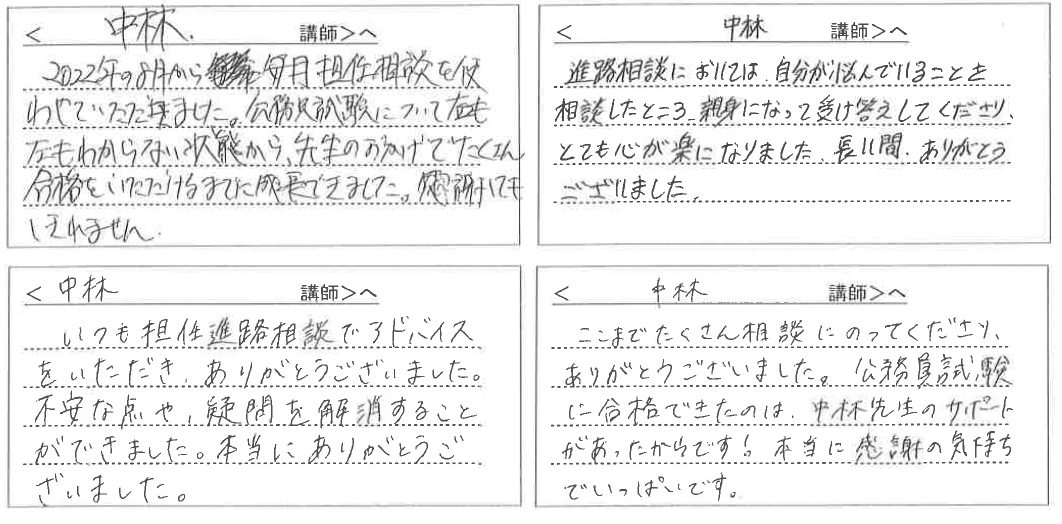 <中林 講師>へ
2022年の8月から 毎月担任相談を使
わせていただきました。公務員試験について右も
左もわからない状態から、先生のおかげでたくさん
合格をいただけるまでに成長できました。感謝しても
しきれません。
<中林 講師>へ
進路相談においては、自分が悩んでいることを
相談したところ、親身になって受け答えしてくださり、
とても心が楽になりました。長い間、ありがとう
ございました。
<中林 講師>へ
いつも担任進路相談でアドバイス
をいただき、ありがとうございました。
不安な点や、疑問を解消すること
ができました。本当にありがとうご
ざいました。
<中林 講師>へ
ここまでたくさん相談にのってくださり、
ありがとうございました。公務員試験
に合格できたのは、中林先生のサポート
があったからです! 本当に感謝の気持ち
でいっぱいです。